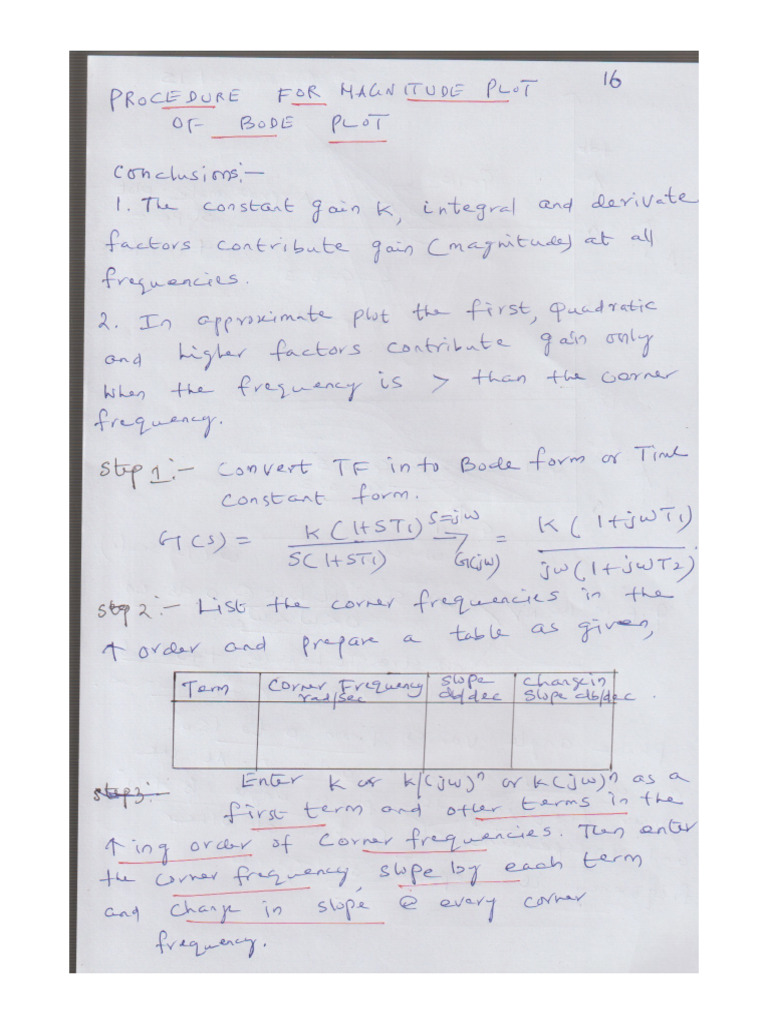 16
PROCEDURE FOR MAGNITUDE PLOT
OF BODE PLOT
Conclusions:-
1. The constant gain K, integral and derivate
factors contribute gain (magnitude) at all
frequencies.
2. In approximate plot the first, quadratic
and higher factors contribute gain only
when the frequency is > than the corner
frequency.
Step 1:- Convert TF in to Bode form or Time
constant form.
G(s) = K(1+ST1) / S(1+ST1) S=jω → G(jω) = K(1+jωT1) / jω(1+jωT2).
Step 2:- List the corner frequencies in the
↑ order and prepare a table as given,
Term | Corner Frequency rad/sec | Slope db/dec | Change in Slope db/dec
Step 3:- Enter K or K/(jω)ⁿ or K(jω)ⁿ as a
first term and other terms in the
↑ing order of corner frequencies. Then enter
the corner frequency, slope by each term
and change in slope @ every corner
frequency.